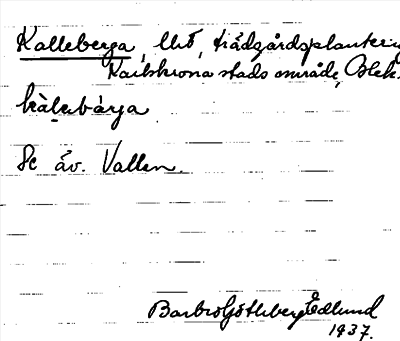 Kalleberga, Urb, trädgårdsplantering
Karlskrona stads område, Blek.
kàlebárga
Se äv. Vallen.
Barbro Götheberg Edlund
1937.